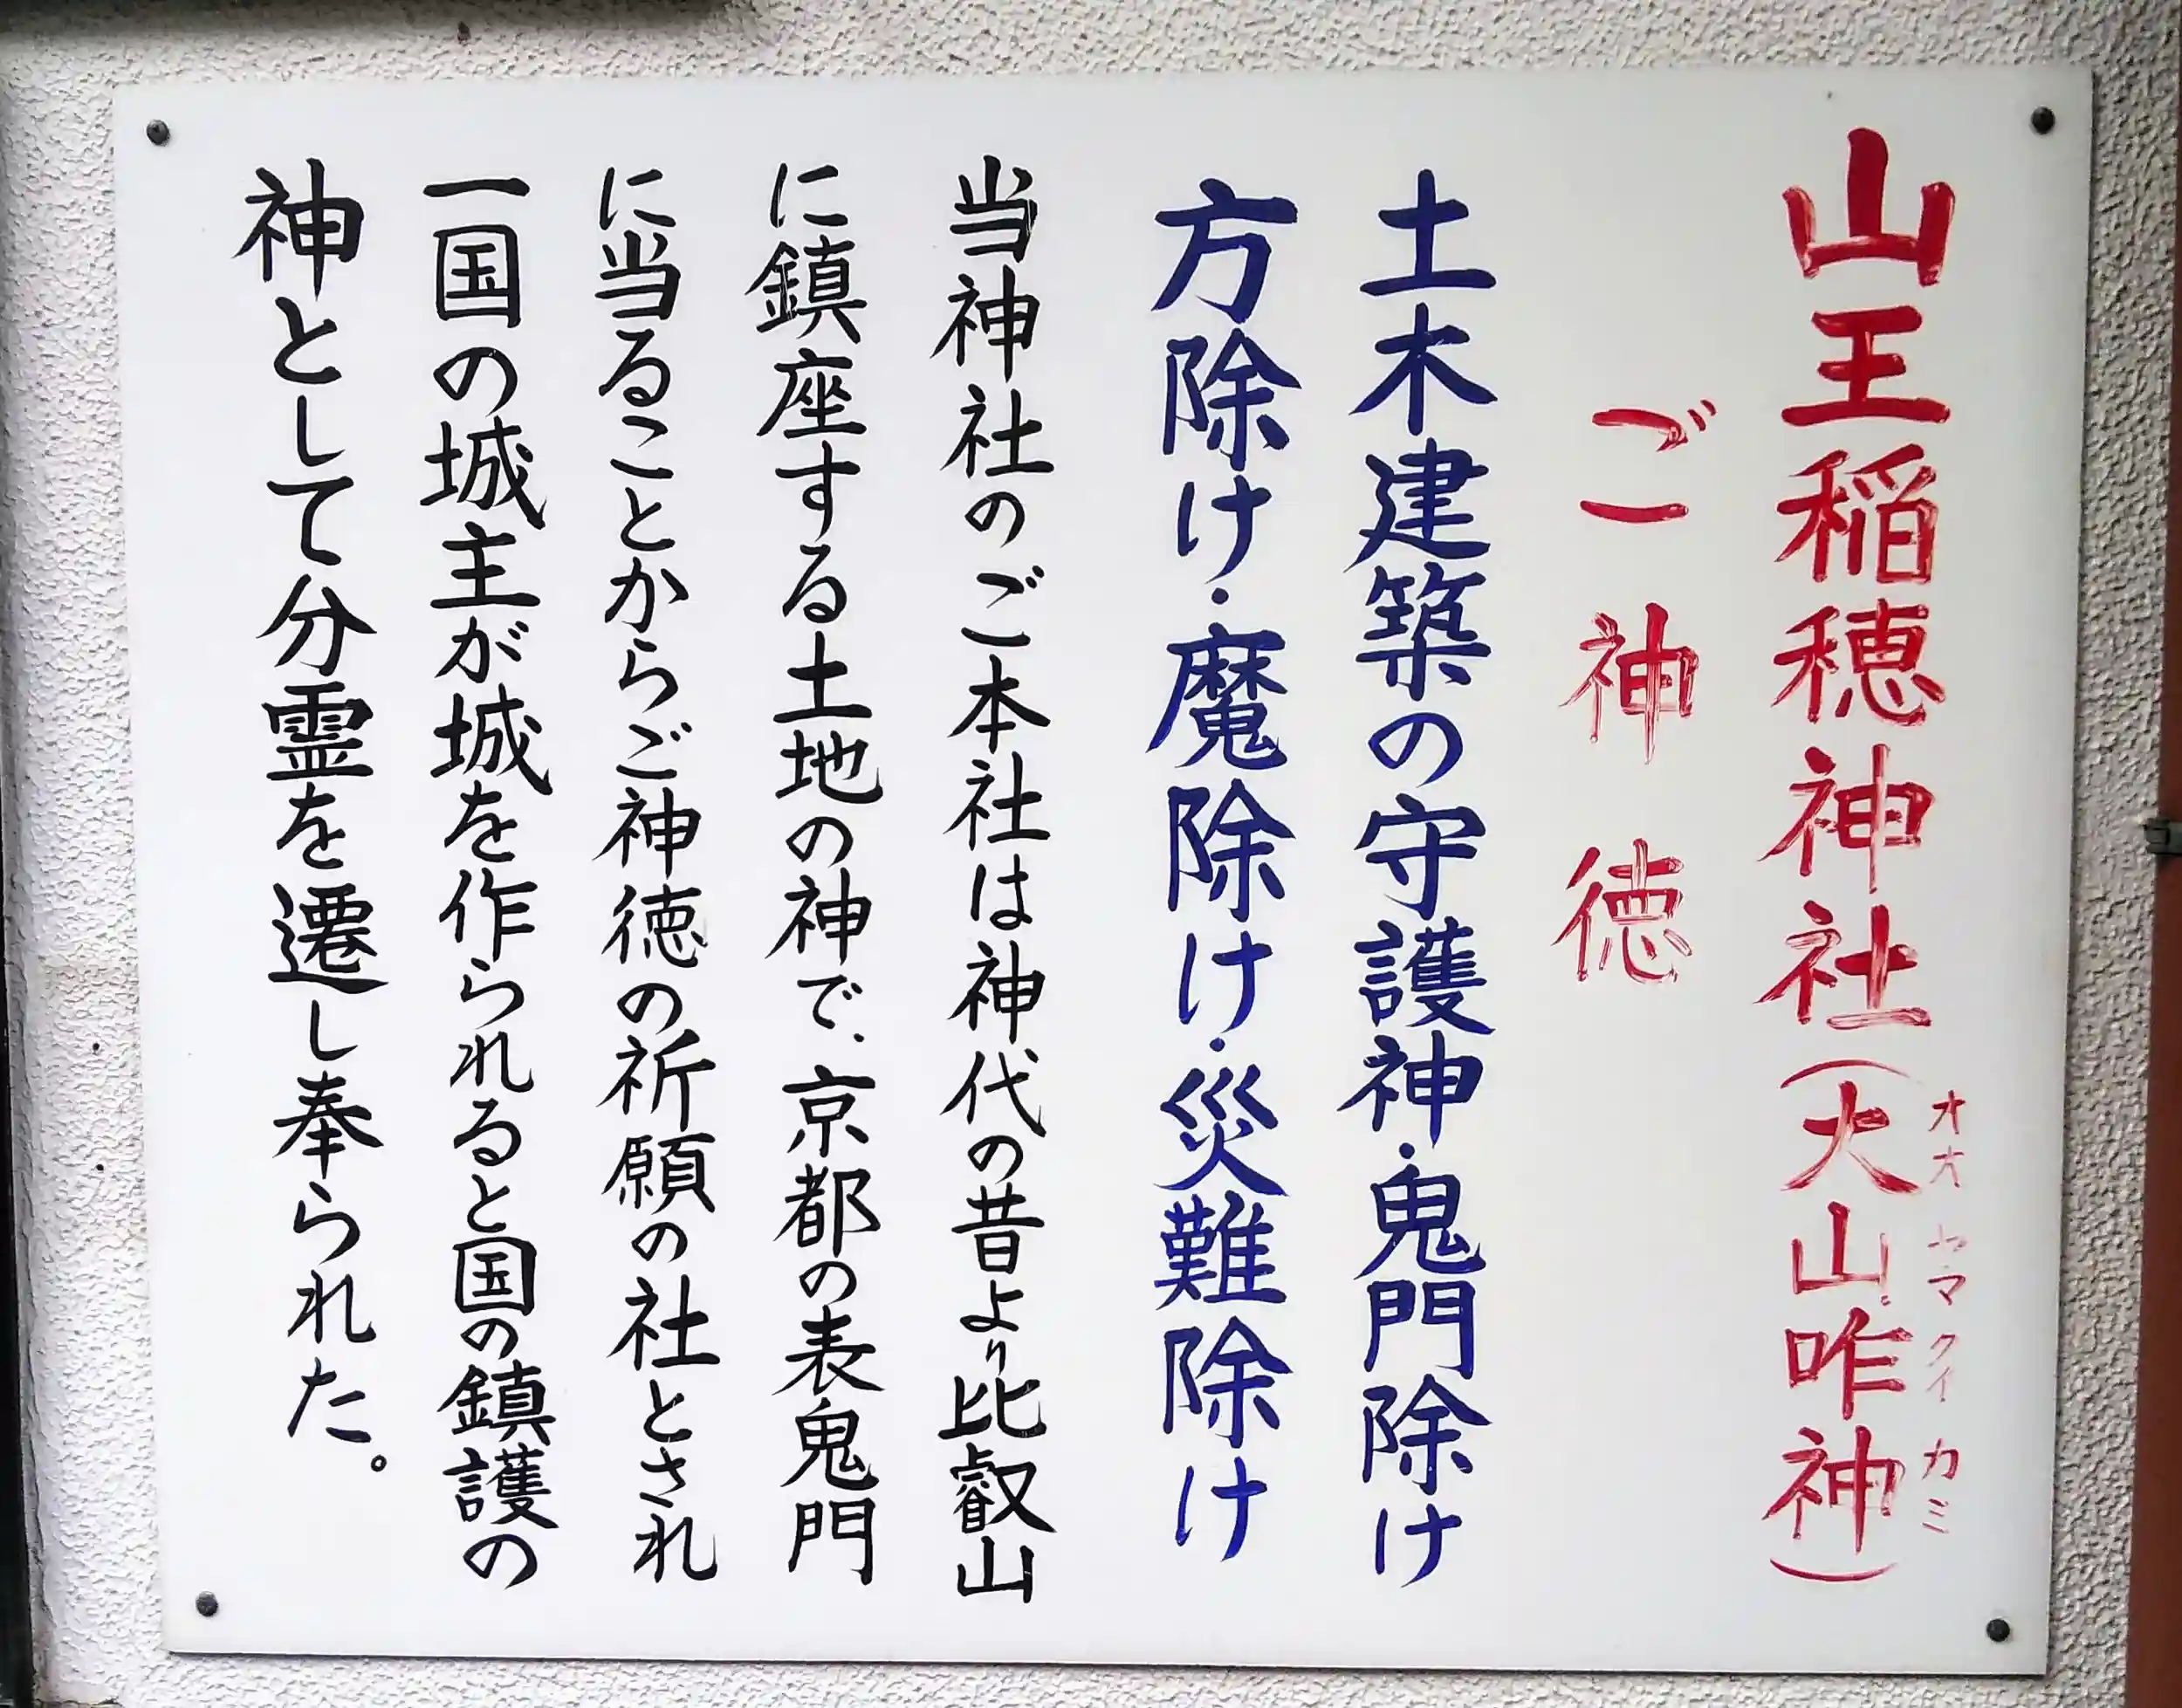 山王稲穂神社(大山咋神)
オオヤマクイカミ
ご神徳
土木建築の守護神・鬼門除け
方除け・魔除け・災難除け
当神社のご本社は神代の昔より比叡山
に鎮座する土地の神で、京都の表鬼門
に当ることからご神徳の祈願の社とされ
一国の城主が城を作られると国の鎮護の
神として分霊を遷し奉られた。